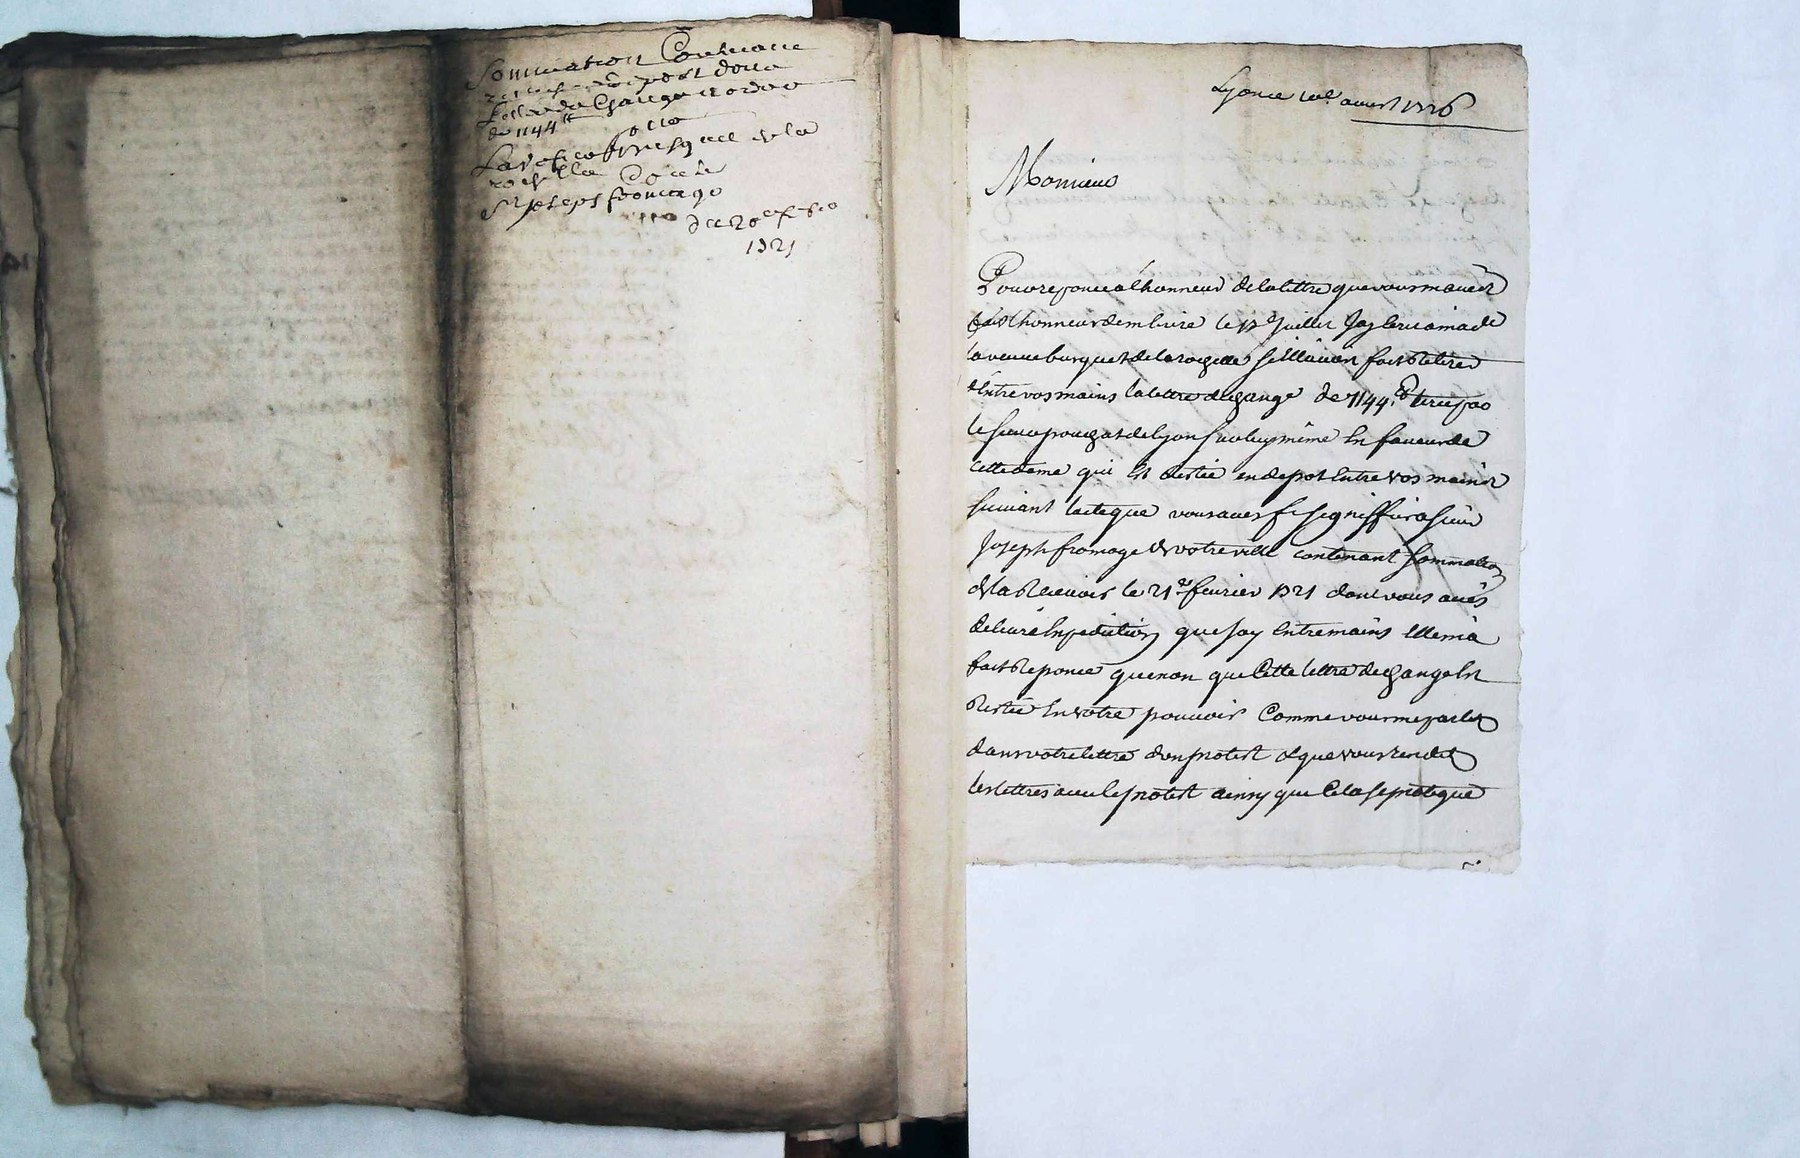 Sommation Contenant
depost d'une
Lettre de Change
de 1144ᵗᵗ
La veſve Burquet de la
rochette Contre
Sʳ joseph fromage
du 20ᵉ
1721
Lyon ce aoust 1726
Monsieur
Pour reponce a lhonneur de la lettre que vous m'aués
fait lhonneur de m'ecrire le 17ᵉ Juillet Jay
la veuve burquet de la rochette si Elle auoit fait retirer
d'Entre vos mains la lettre de change de 1144.ᵗᵗ tirée par
le sieur pouchot de Lyon sur luy même En faueur de
cette dame qui Est restée en depost Entre vos mains
suivant lacte que vous aues ft signiffier a sieur
Joseph fromage de votre ville contenant sommation
de la Receuoir le 21ᵉ feurier 1721 dont vous aués
deliuré Expedition que Jay Entre mains Elle m'a
fait Reponce que non que Cette lettre de change Est
Restée En votre pouuoir Comme vous me parlez
dans votre lettre d'un protest et que vous rendez
les lettres auec le protest ainsy que Cela se pratique